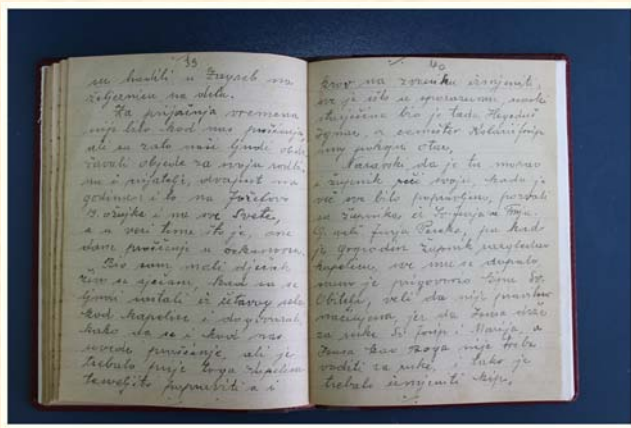 39
su hodili u Zagreb na
željeznicu na dela.
Za prijašnja vremena
nije bilo kod nas prošćenja,
ali su zato naši ljudi obdr
žavali objede za svoju rodbi
nu i prijatelje, dvaput na
godinu i to na Jožefovo
19. ožujka i na sve Svete,
a u veri tome što je, one
dan prošćenje u
Bio sam mali dječak
živo se sjećam, kad su se
ljudi sastali iz čitavog sela
kod kapelice i dogovarali
kako da se i kod nas
uvede prošćenje, ali je
trebalo prije toga kapelicu
temeljito popraviti a i
40
krov na zvoniku izmjeniti,
sve je išlo u sporazumu
starješina bio je tada Heged
Ignac, a
moj pokojni otac.
Naravski da je tu morao
i župnik reći svoju, kada je
već sve bilo popravljeno, pozvali
su župnika, iz Sv. Jurja
G. veleč Juraj kad
je gospodin župnik razgledao
kapelicu, sve mu se dopalo
samo je prigovorio kipu Sv.
Obitelji, veli da nije pravilno
načinjena, jer da Isusa drže
za ruke Sv. Josip i Marija, a
Isusa kao Boga nije treba
voditi za ruke, i tako je
trebalo izmjeniti kip.